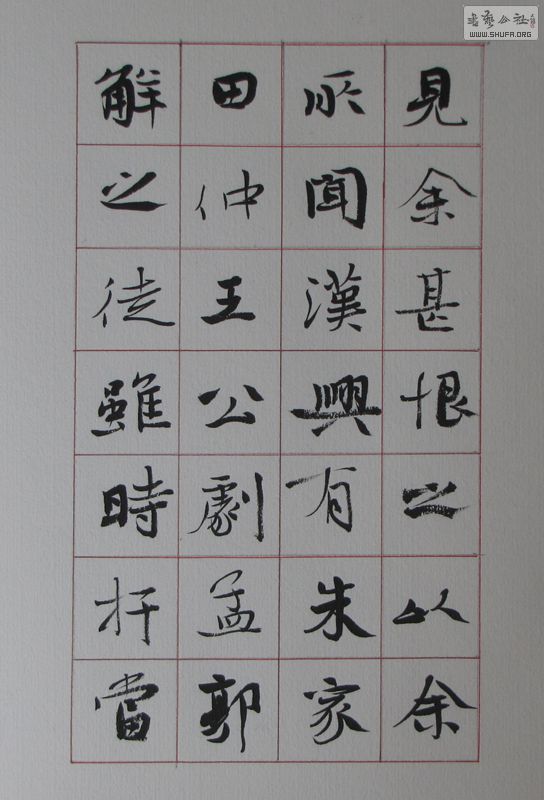 見余甚恨之以余
所聞漢興有朱家
田仲王公劇孟郭
解之徒雖時扞當
書藝公社
WWW.SHUFA.ORG